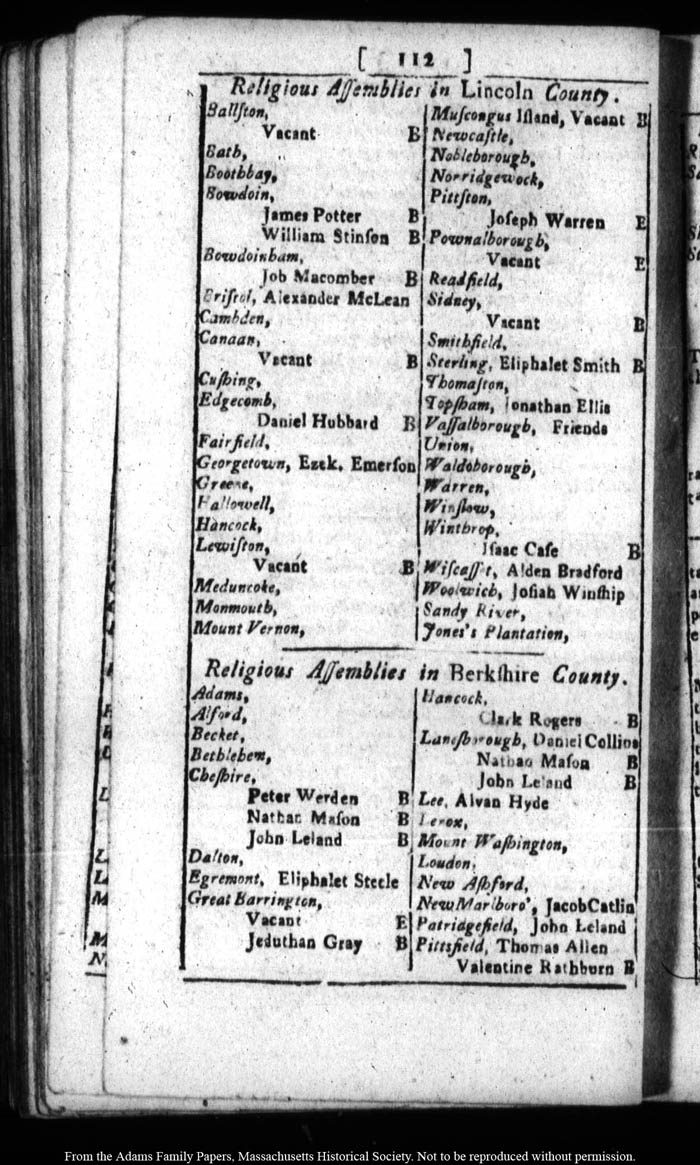 [ 112 ]
Religious Aſſemblies in Lincoln County.
Ballſton,
Vacant B
Bath,
Boothbay,
Bowdoin,
James Potter B
William Stinſon B
Bowdoinham,
Job Macomber B
Briſtol, Alexander McLean
Cambden,
Canaan,
Vacant B
Cuſhing,
Edgecomb,
Daniel Hubbard B
Fairfield,
Georgetown, Ezek. Emerſon
Greene,
Hallowell,
Hancock,
Lewiſton,
Vacant B
Meduncoke,
Monmouth,
Mount Vernon,
Muſcongus Iſland, Vacant B
Newcaſtle,
Nobleborough,
Norridgewock,
Pittſton,
Joſeph Warren E
Pownalborough,
Vacant E
Readfield,
Sidney,
Vacant B
Smithfield,
Sterling, Eliphalet Smith B
Thomaſton,
Topſham, Jonathan Ellis
Vaſſalborough, Friends
Union,
Waldoborough,
Warren,
Winſlow,
Winthrop,
Iſaac Caſe B
Wiſcaſſet, Alden Bradford
Woolwich, Joſiah Winſhip
Sandy River,
Jones's Plantation,
Religious Aſſemblies in Berkſhire County.
Adams,
Alford,
Becket,
Bethlehem,
Cheſhire,
Peter Werden B
Nathan Maſon B
John Leland B
Dalton,
Egremont, Eliphalet Steele
Great Barrington,
Vacant E
Jeduthan Gray B
Hancock,
Clark Rogers B
Laneſborough, Daniel Collins
Nathan Maſon B
John Leland B
Lee, Alvan Hyde
Lenox,
Mount Waſhington,
Loudon,
New Aſhford,
New Marlboro', Jacob Catlin
Patridgefield, John Leland
Pittsfield, Thomas Allen
Valentine Rathburn B
From the Adams Family Papers, Massachusetts Historical Society. Not to be reproduced without permission.